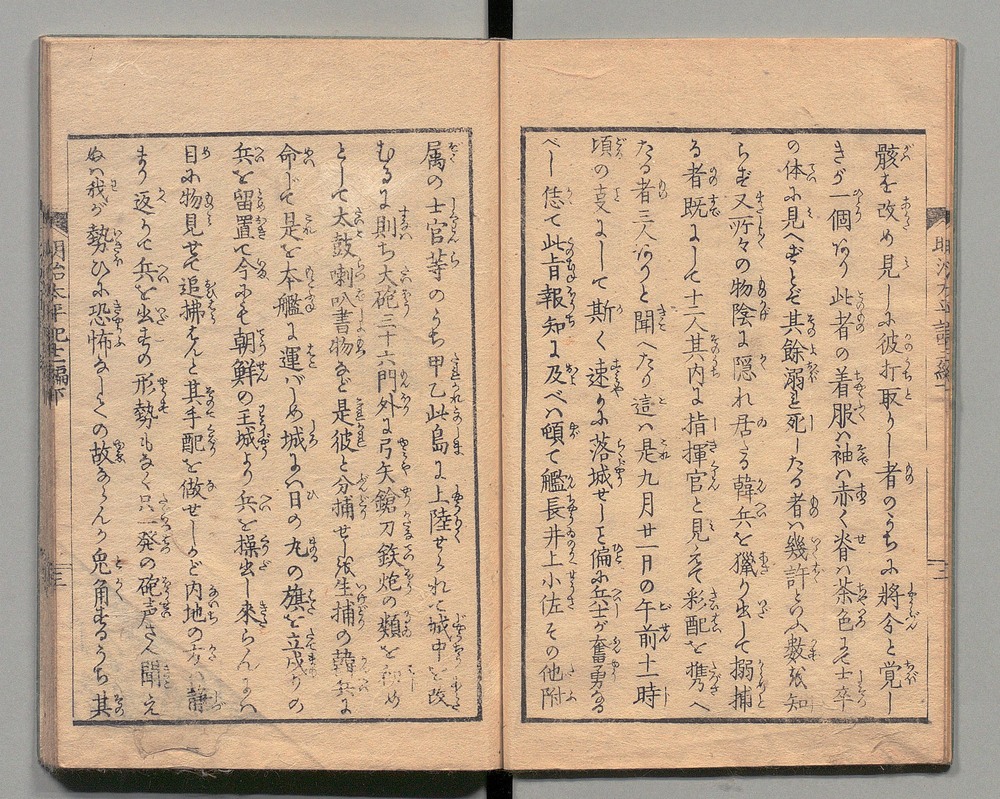 骸を改め見しに彼打取りし者のうちに将令と覚し
き者一個あり此者の着服ハ袖ハ赤く脊ハ茶色にて士卒
の体に見へずとぞ其餘溺れ死したる者ハ幾許とふ數を知
らず又所々の物陰に隠れ居る韓兵を獵り出して搦捕
る者既にして十二人其内に指揮官と見えて彩配を携へ
たる者三人ありと聞へたり這ハ是九月廿一日の午前十一時
頃の事にして斯く速かに落城せしと偏に兵士が奮勇なる
べし恁て此旨報知に及べハ頓て艦長井上小佐その他附
属の士官等のうち甲乙此島に上陸せられて城中を改
むるに則ち大砲三十六門外に弓矢鎗刀鉄炮の類を初め
として太鼓喇叭書物など是彼と分捕せし後生捕の韓兵に
命じて是を本艦に運バしめ城にハ日の丸の旗を立戍りの
兵を留置て今にも朝鮮の王城より兵を操出し来らんにハ
目に物見せて追拂はんと其手配を做せしかど内地の方ハ静
まり返りて兵を出すの形勢もなく只一発の砲声さへ聞え
ぬハ我が勢ひに恐怖なしての故ならんか兎角するうち其
明治太平記十一編下
三